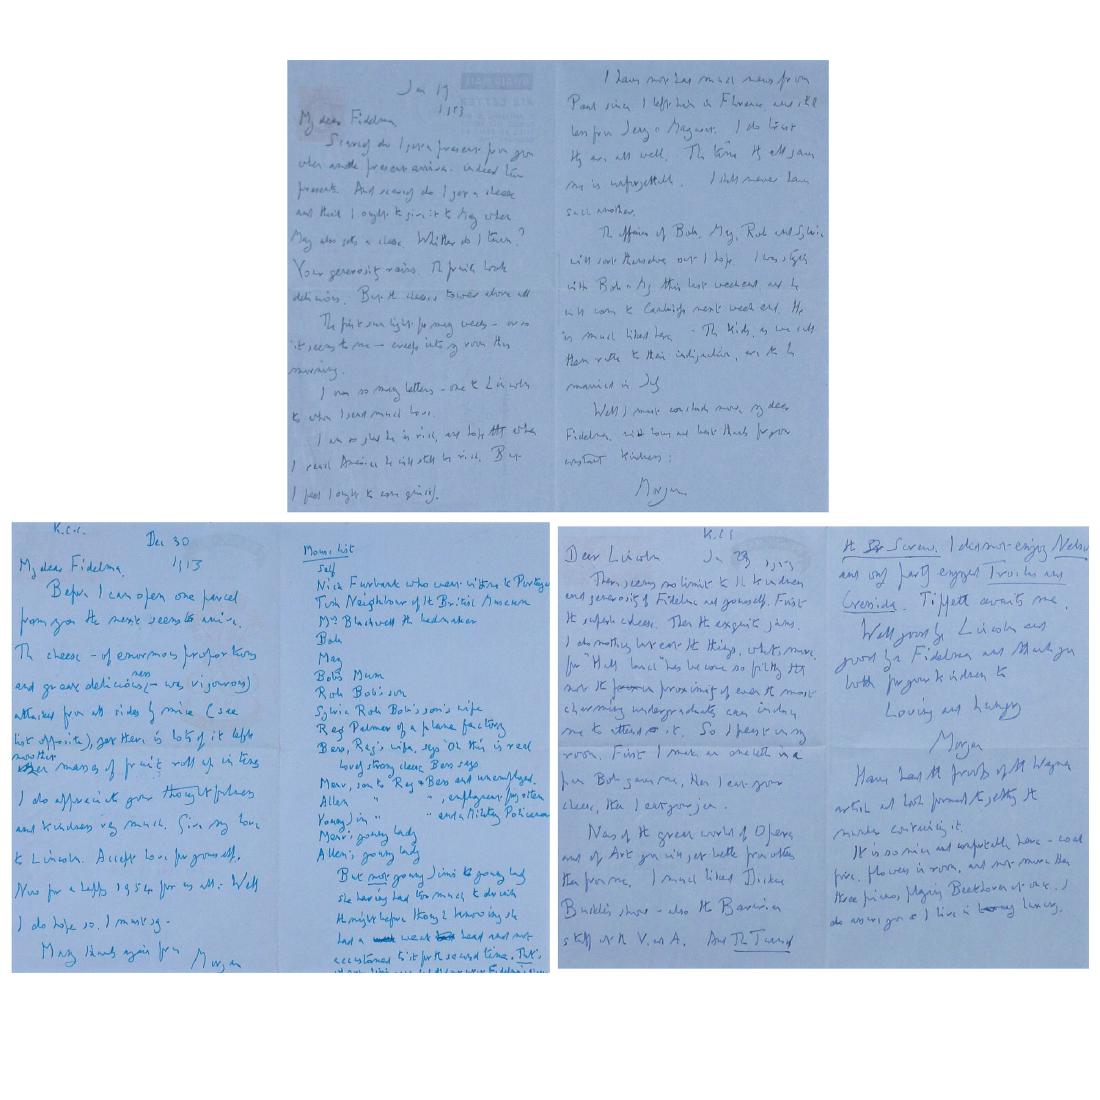 Jan 19
1953
My dear Fidelma
Scarcely do I get a present from you
when another present arrives. indeed two
presents. And scarcely do I get a cheese
and think I ought to give it to May when
May also gets a cheese. Whither do I turn?
Your generosity rains. The fruits look
delicious. But the cheeses tower above all
The first sun light for many weeks – or so
it seems to me – creeps into my room this
morning.
I owe so many letters – one to Lincoln
to whom I send much love.
I am so glad he is rich, and hope that when
I reach America he will still be rich. But
I feel I ought to come quickly.
I have not had much news from
Paul since I left him in Florence, and still
less from Jerry or Margaret. I do trust
they are all well. The time they all gave
me is unforgettable. I shall never have
such another.
The affairs of Bob, May, Rob and Sylvia
will sort themselves out I hope. I was staying
with Bob & May this last weekend, and he
will come to Cambridge next week end. He
is much liked here – The Kids, as we call
them rather to their indignation, are to be
married in July
Well I must conclude now, my dear
Fidelma, with love and best thanks for your
constant kindness:
Morgan
K.C.C.
Dec 30
1953
My dear Fidelma,
Before I can open one parcel
from you the next seems to arrive.
The cheese – of enormous proportions
and great deliciousness – was vigorously
attacked from all sides by mice (see
list opposite), yet there is lots of it left
another
masses of fruit roll up in tins
I do appreciate your thoughtfulness
and kindness very much. Give my love
to Lincoln. Accept love for yourself.
Now for a happy 1954 for us all: Well
I do hope so, I must say –
Many thanks again from
Morgan
Mouse List
Self
Nick Furbank who went with me to Portugal
Tim Neighbour of the British Museum
Mrs Blackwell the bedmaker
Bob
May
Bob's Mum
Rob Bob's son
Sylvia Rob Bob's son's wife
Reg Palmer of a plane factory
Bess, Reg's wife, says 'Oh this is real
lovely strong cheese Bess says
Merv, son to Reg & Bess and unemployed.
Allen " " ", employment forgotten
Young Jim " " and a Military Policeman
Merv's young lady
Allen's young lady
But not young Jim's young lady
she having had too much to drink
the night before though knowing she
had a weak head and not
accustomed to it for the second time. That's
K.C.C
Dear Lincoln Jan 23 1953
There seems no limit to the kindness
and generosity of Fidelma and yourself. First
the superb cheese. Then the exquisite jams.
I do nothing but eat the things, what's more,
for "Hall lunch" has become so filthy that
not the proximity of even the most
charming undergraduates can induce
me to attend it. So I feast in my
room. First I make an omelette in a
pan Bob gave me, then I eat your
cheese, then I eat your jam.
News of the great world of Opera
and of Art you will get better from others
than from me. I much liked Dickie
Buckle's show – also the Bavarian
stuff at the V. and A. And The Turn of
the Screw. I do not enjoy Nelson
and only partly enjoyed Troilus and
Cressida. Tippett awaits me.
Well goodbye Lincoln and
good bye Fidelma and thank you
both for your kindness to
Loving and hungry
Morgan
Have had the proofs of the Wagner
article and look forward to getting the
number containing it.
It is so nice and comfortable here – coal
fire, flowers in room, and not more than
three pianos playing Beethoven at once. I
do assure you I live in luxury.